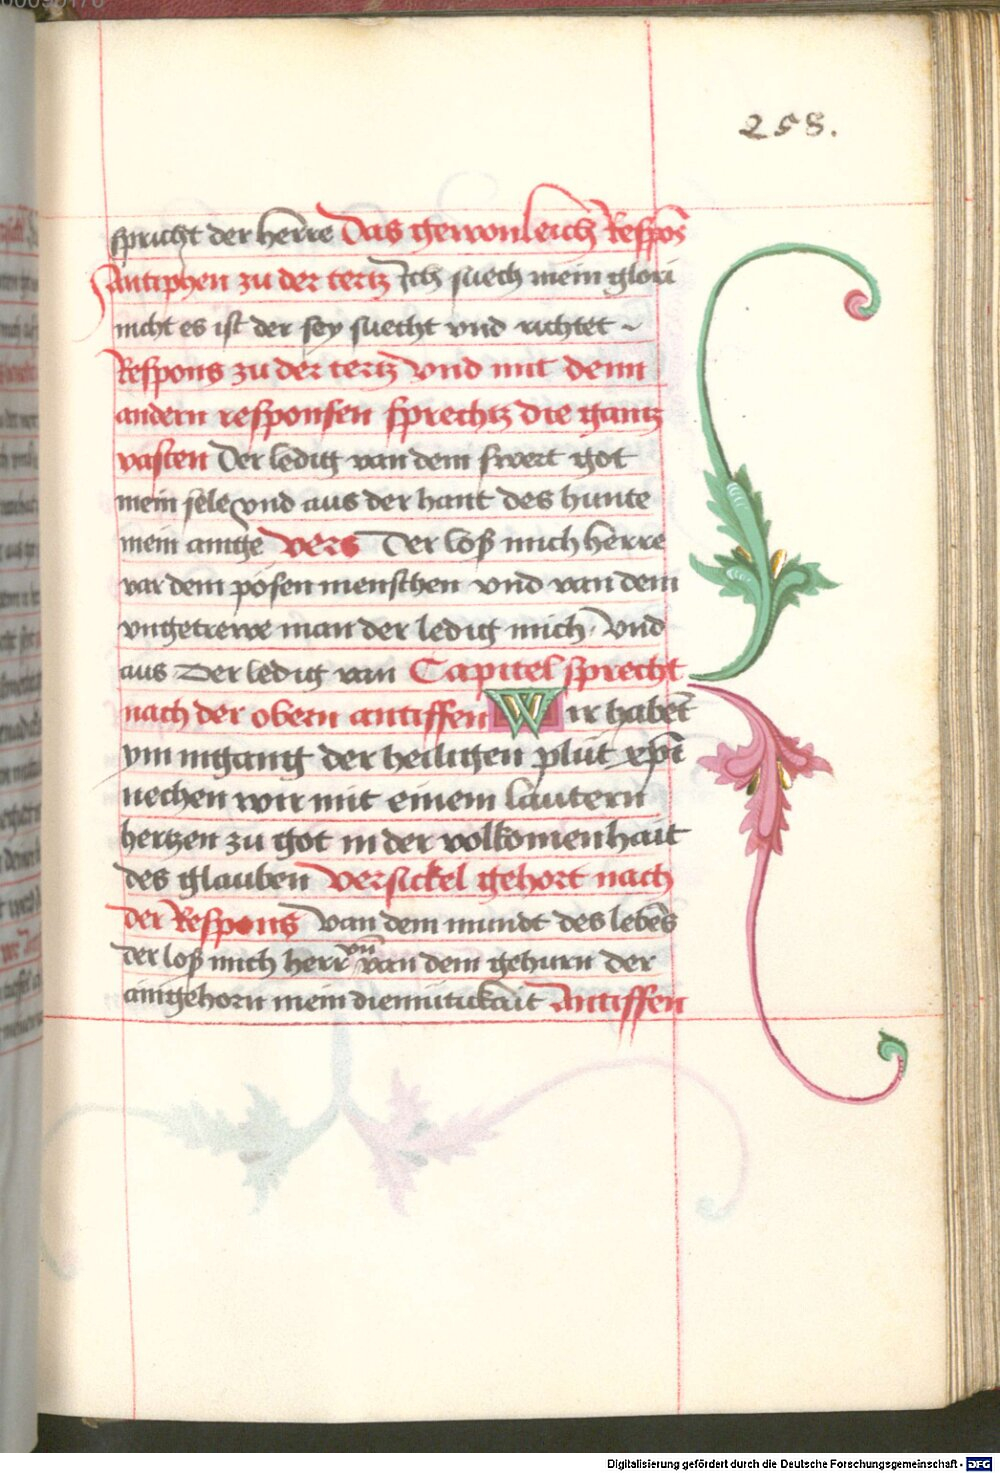 258.
spricht der herre Das gewonleich Respons
Antiphen zu der tertz Ich suech mein glori
nicht es ist der sey suecht vnd richtet ~
Respons zu der tertz vnd mit denn
andern responsen sprechtz die gantz
vasten Der ledig van dem swert got
mein sele vnd aus der hant des hunte
mein ainige vers Der loß mich herre
var dem pösen menschen vnd van dem
vngetrewe man der ledig mich vnd
aus Der ledig van Capitel sprecht
nach der obern antiffen Wir habēt
ym ingang der heiligen plüt xp̄i
nechen wir mit einem lautern
hertzen zu got in der volkomenhait
des glauben versickel gehort nach
der Respons Van dem mundt des lebēs
der loß mich herr vn̄ van dem gehurn der
aingehorn mein diemütikait Antiffen
Digitalisierung gefördert durch die Deutsche Forschungsgemeinschaft - DFG